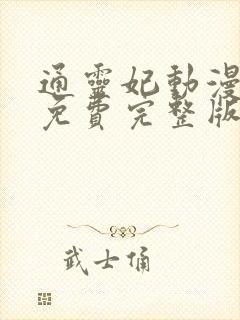 通靈妃動漫
免費完整版
武士俑